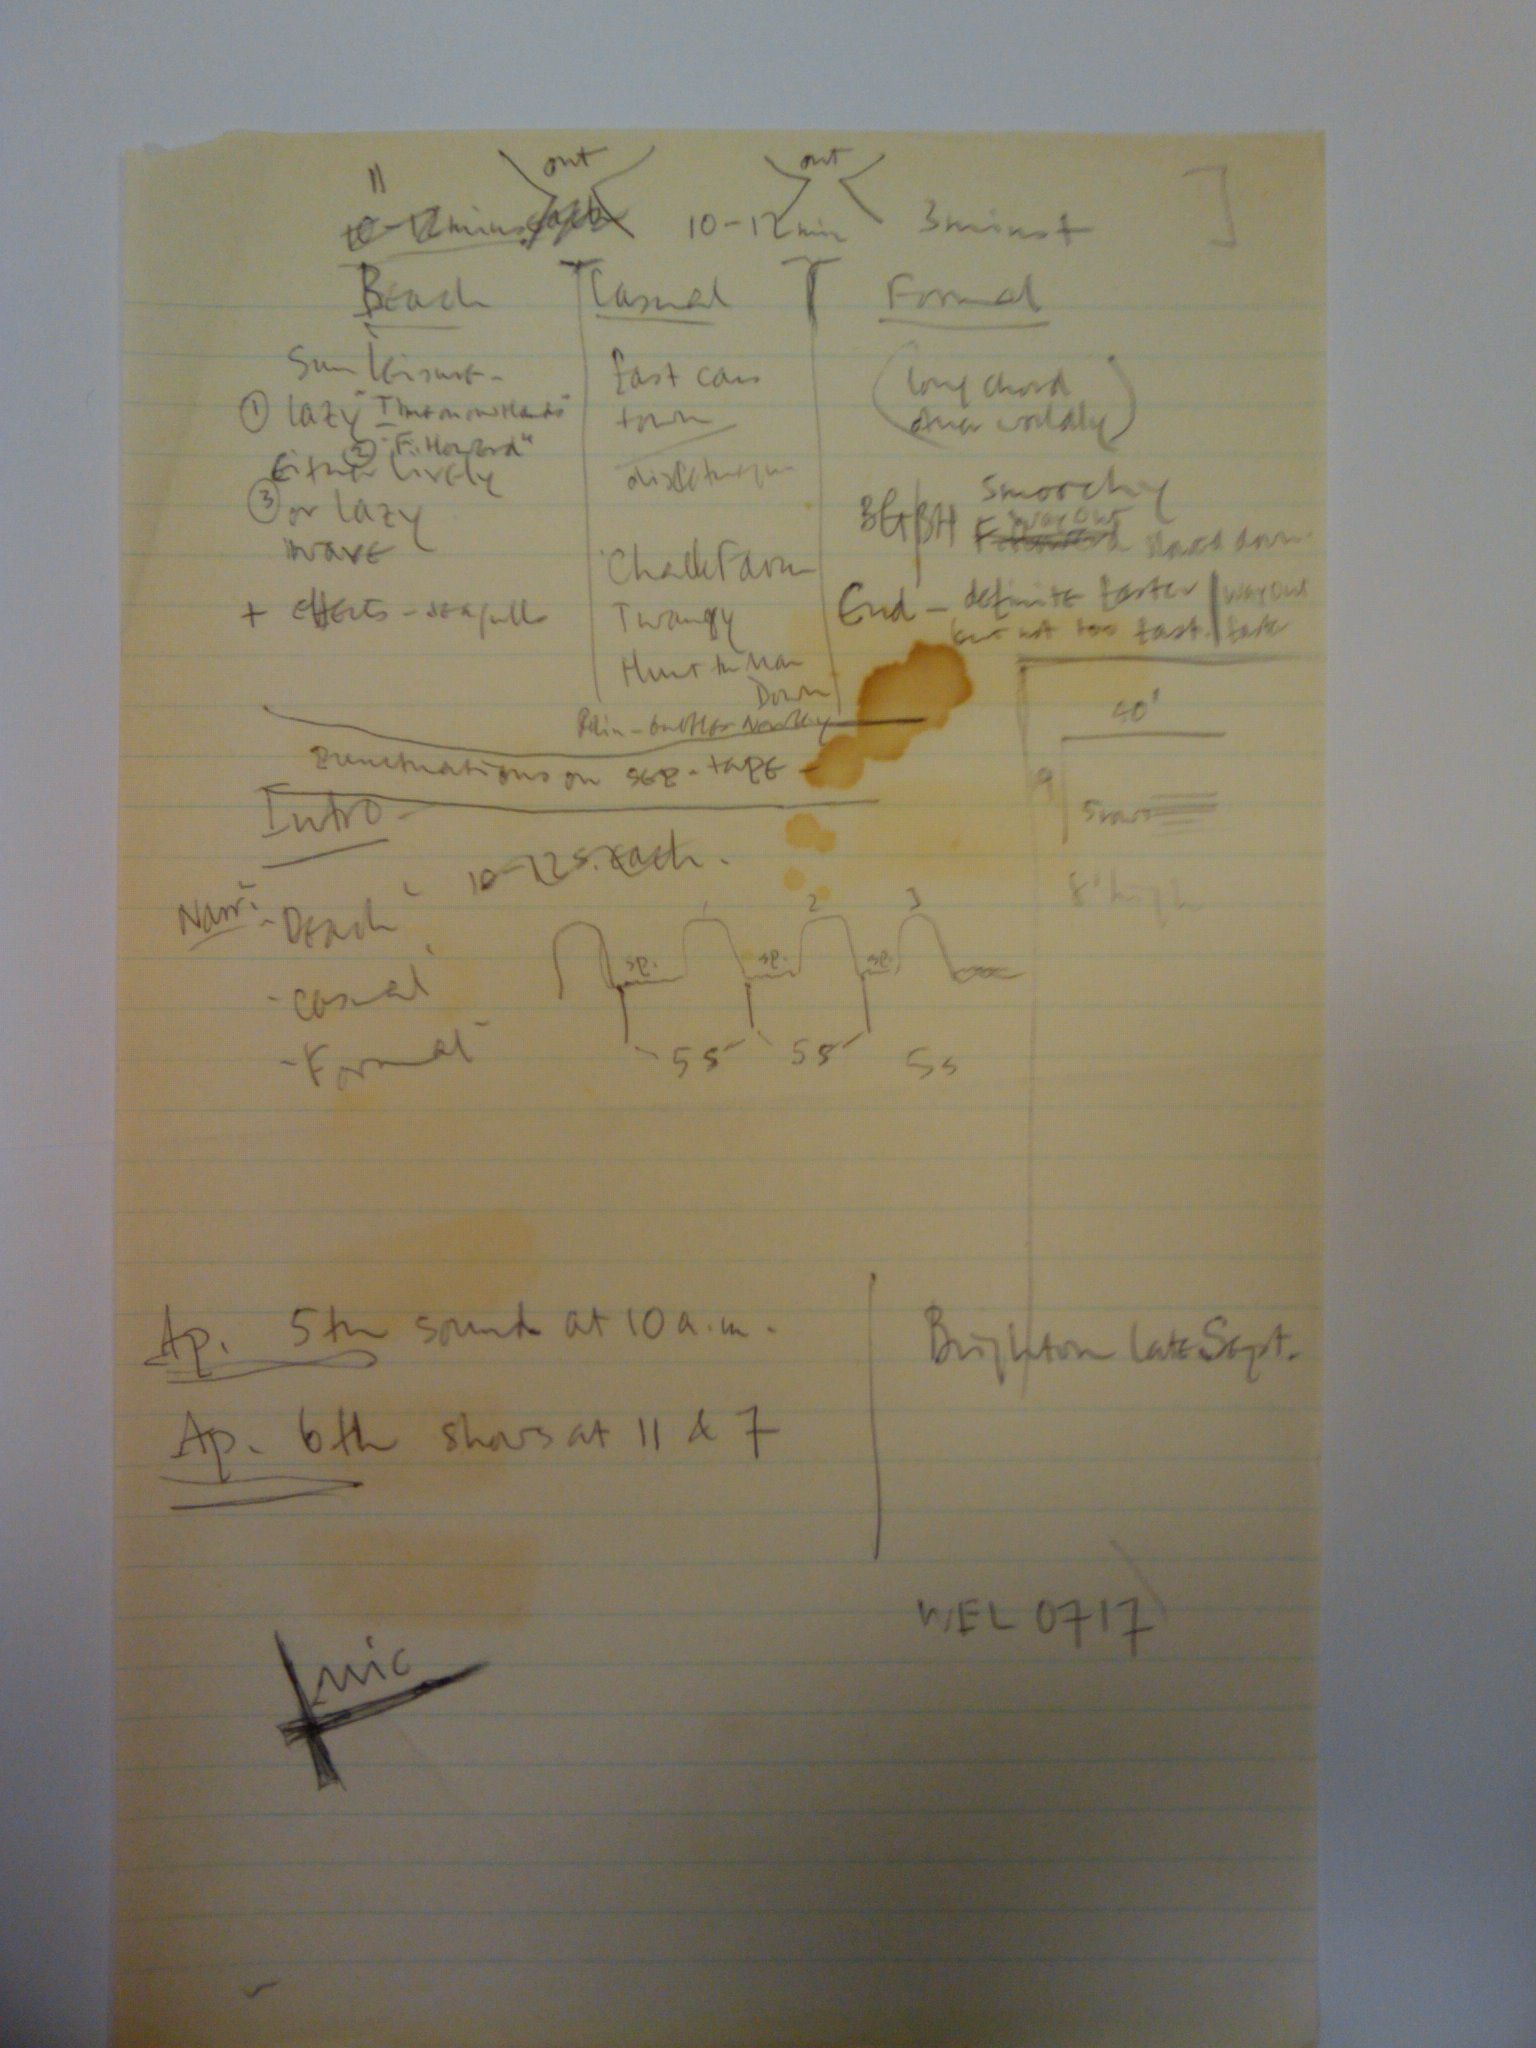 out out
11
10-12 mins each 10-12 min 3 mins +
Beach Casual Formal
Sun leisure - fast cars (long chord
① lazy "Time on our Hands" town other worldly)
② "
Either lively
③ or lazy smoochy
wave way out
slowed down
Chalk Farm
+ effects - seagulls Twangy End - definite faster | way out
but not too fast. | fast
Hunt the Man
Down
40'
punctuations on sep. tape
9
Intro -
10-12 s. each.
8' high
Narr. - Beach
1 2 3
sp. sp. sp.
- Casual
- Formal
5s 5s 5s
Ap. 5th sound at 10 a.m. Brighton late Sept.
Ap. 6th shows at 11 & 7
WEL 0717
mic